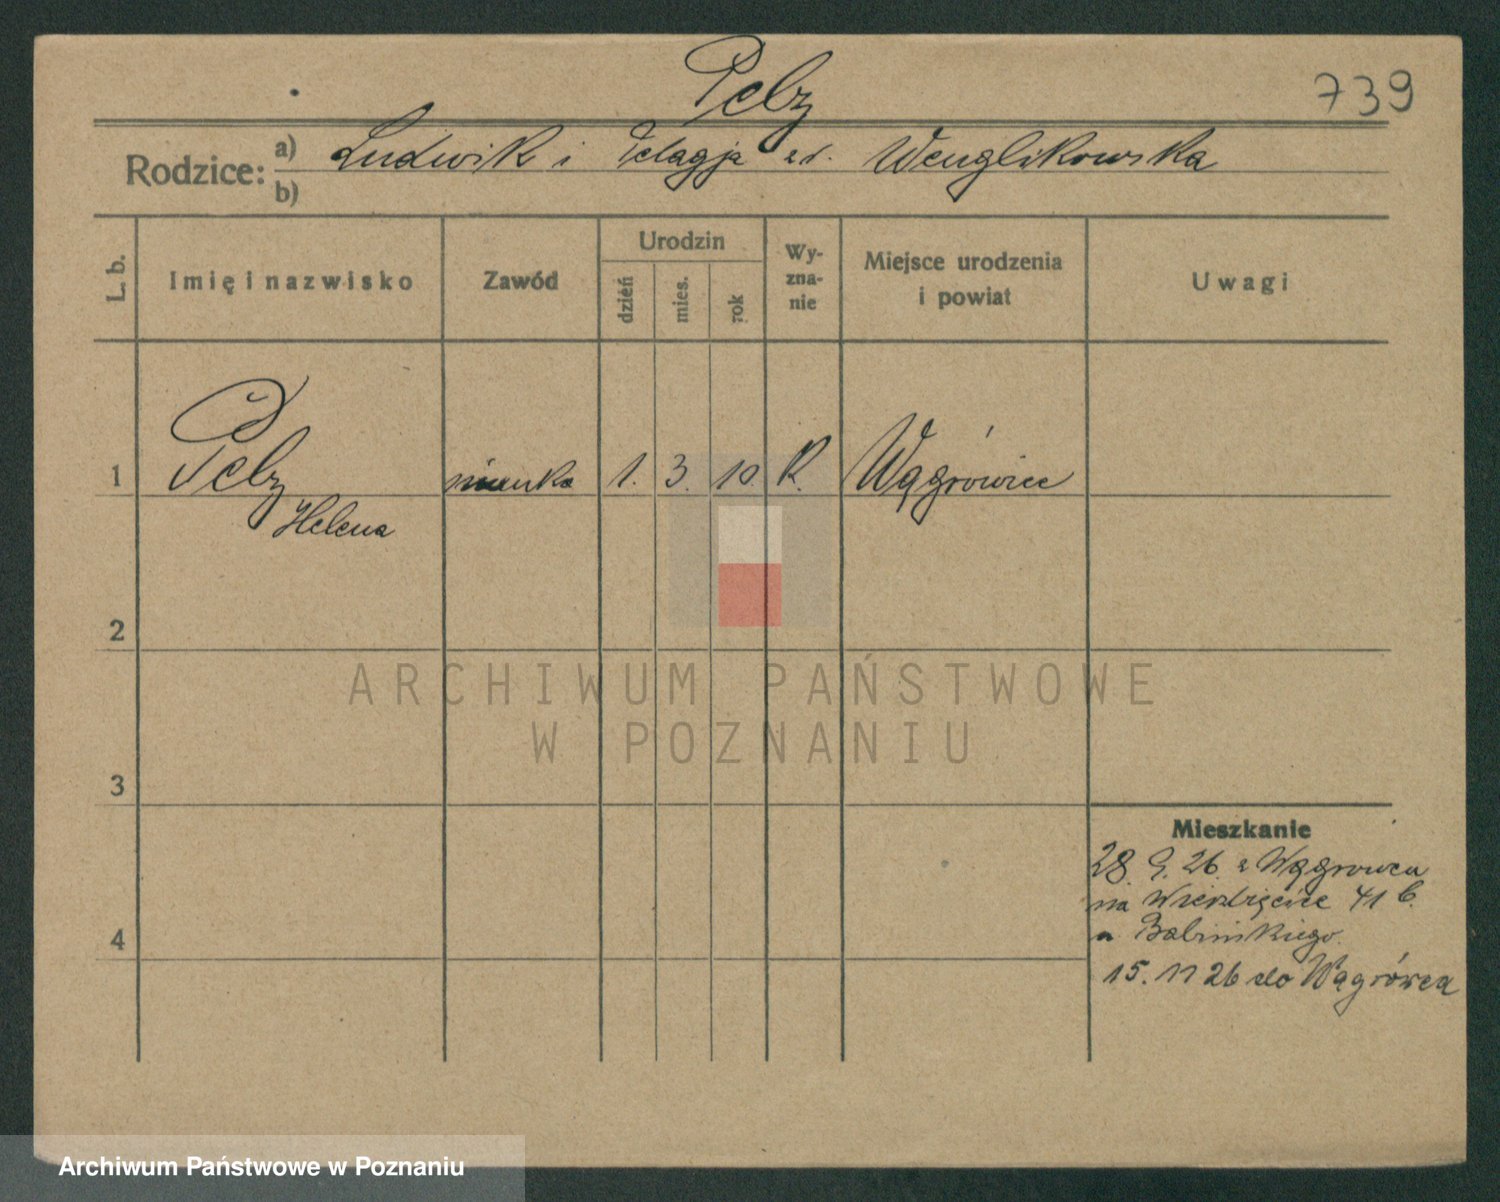 Pelz
739
Rodzice: a) Ludwik i Pelagja zd. Wenglikowska
b)
L. b.
Imię i nazwisko
Zawód
Urodzin
dzień
mies.
rok
Wy-
zna-
nie
Miejsce urodzenia
i powiat
Uwagi
1
Pelz
Helena
nianka
1.
3.
10.
R.
Wągrówiec
2
ARCHIWUM PAŃSTWOWE
W POZNANIU
3
Mieszkanie
28. 9. 26. z Wągrowca
na Wierzbięcice 41 b.
u Babińskiego.
4
15. 11 26 do Wągrówca
Archiwum Państwowe w Poznaniu